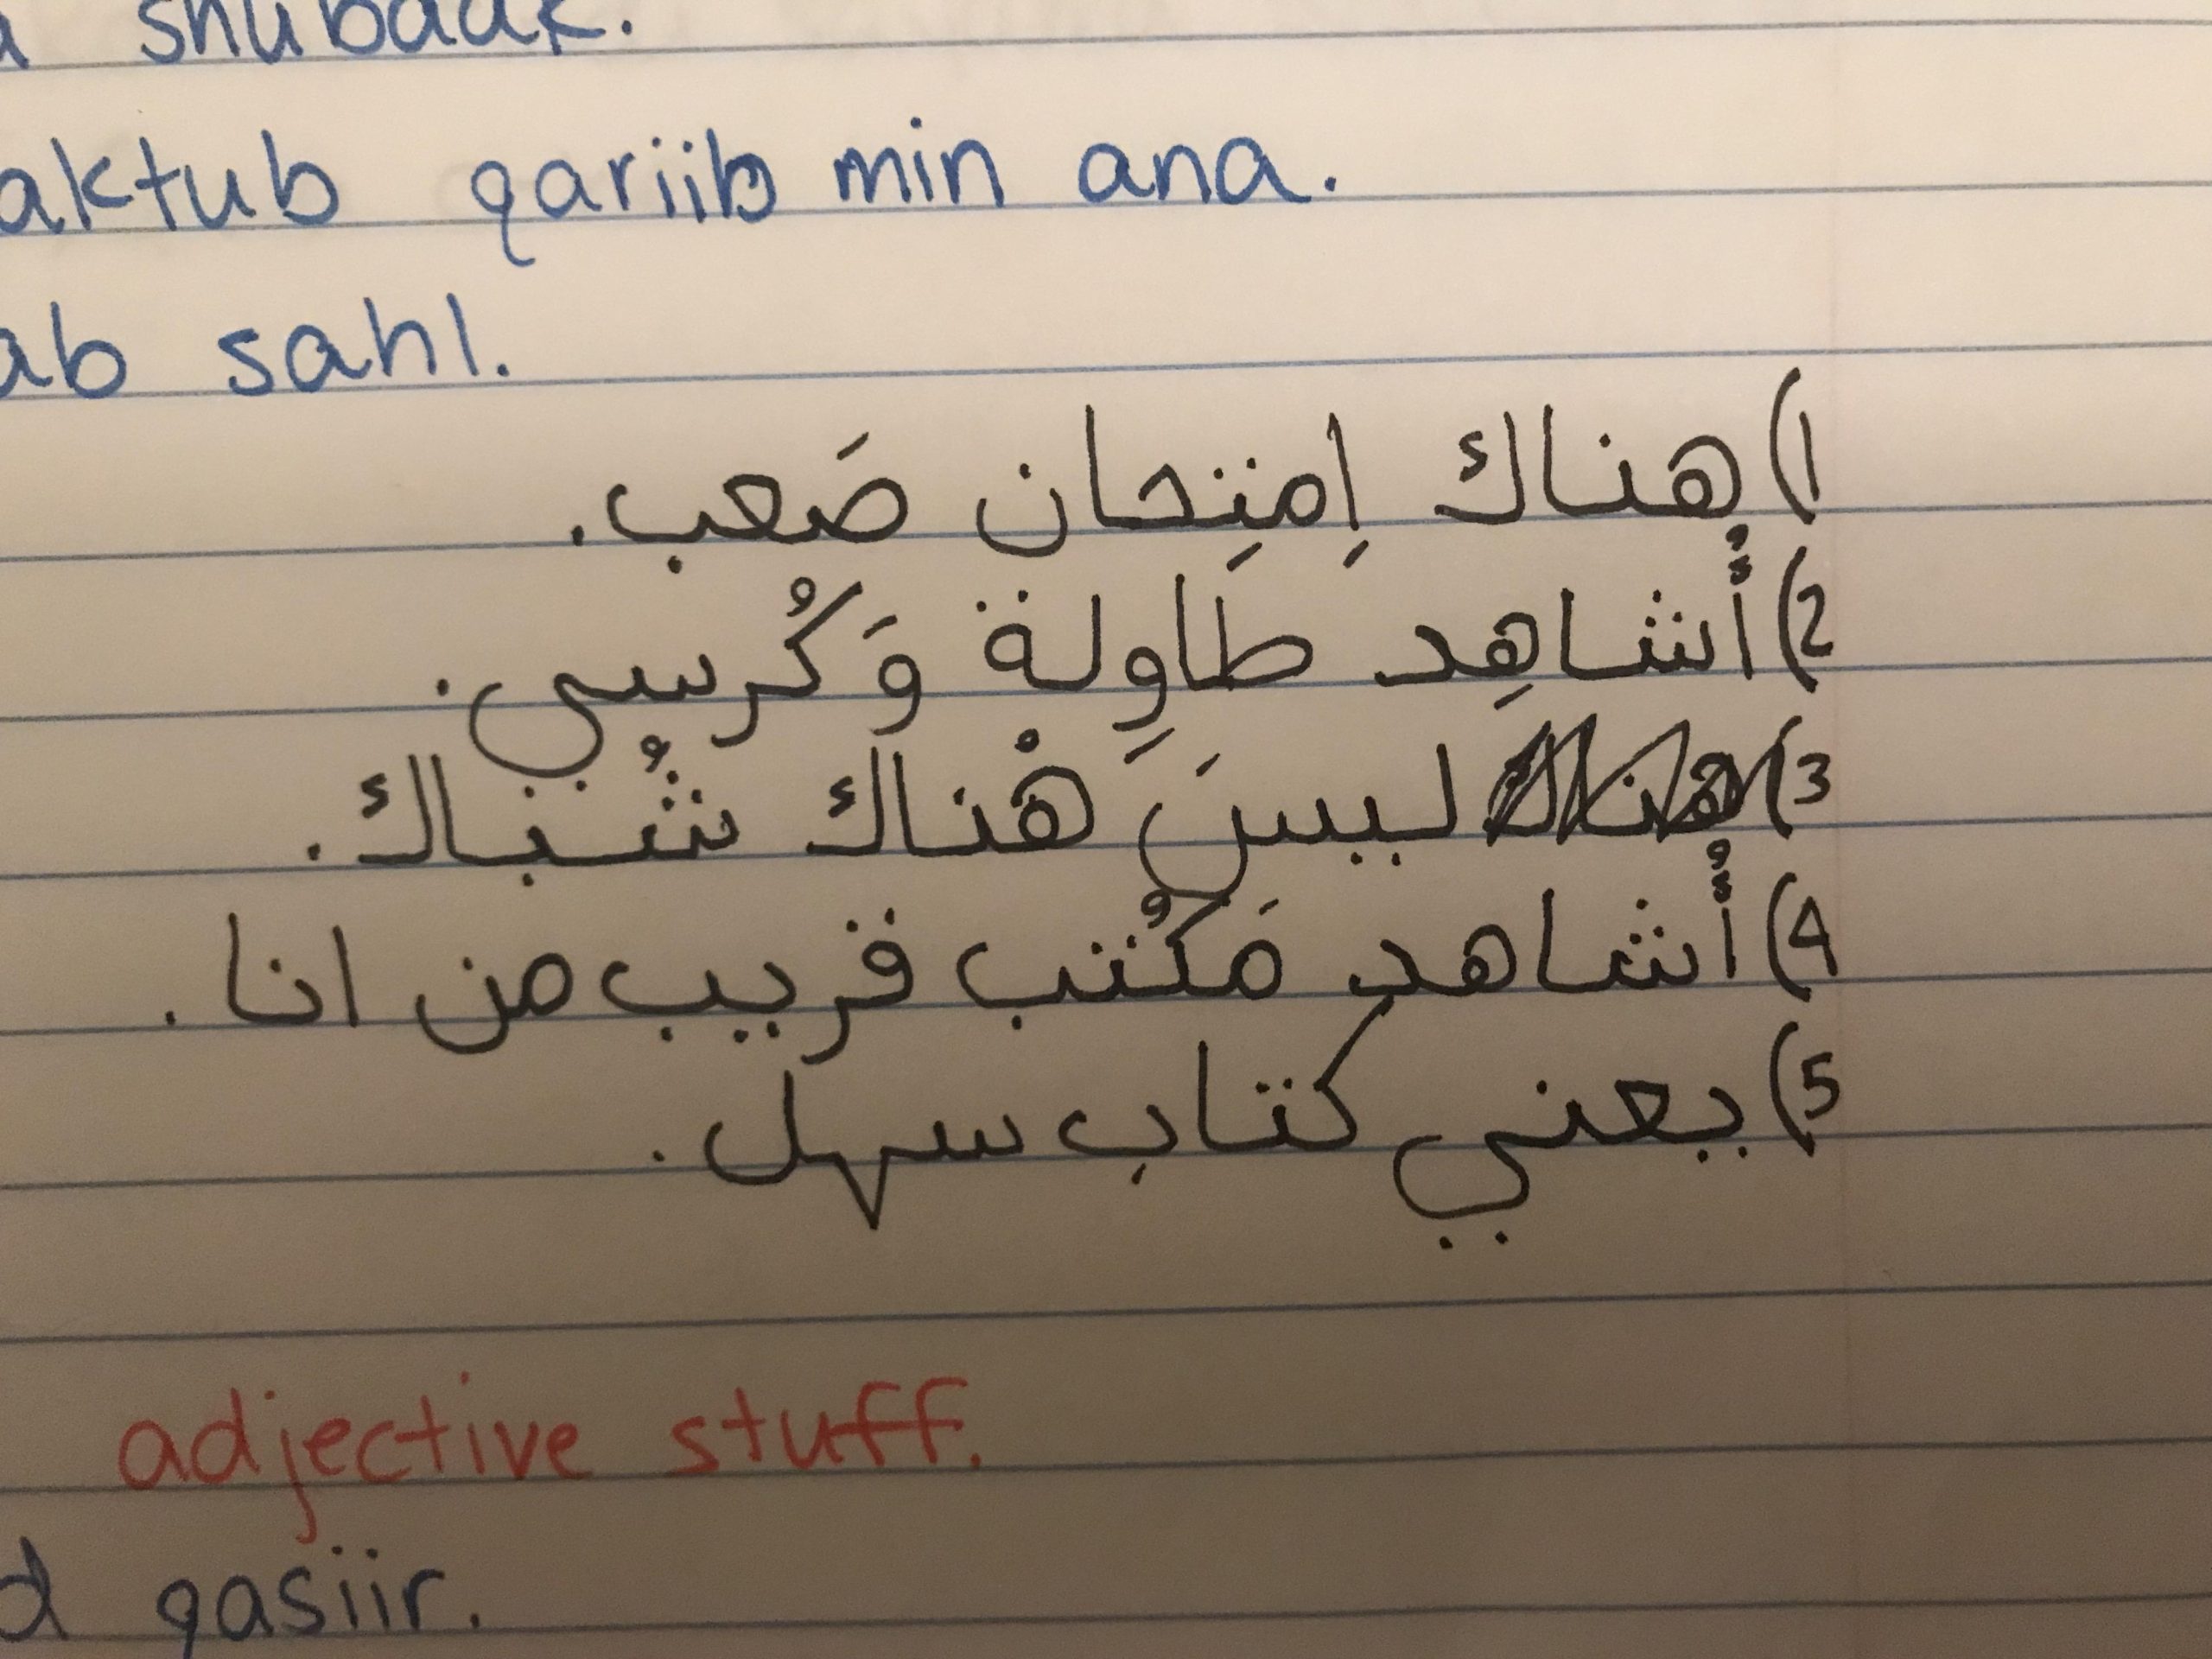 shubaak.
aktub qariib min ana.
ab sahl.
1) هناك اِمتِحان صَعب.
2) أُشاهِد طاوِلة وَكُرسي.
3) ليسَ هُناك شُباك.
4) أُشاهد مَكُتب قريب من انا.
5) يعني كتاب سهل.
adjective stuff.
d qasiir.